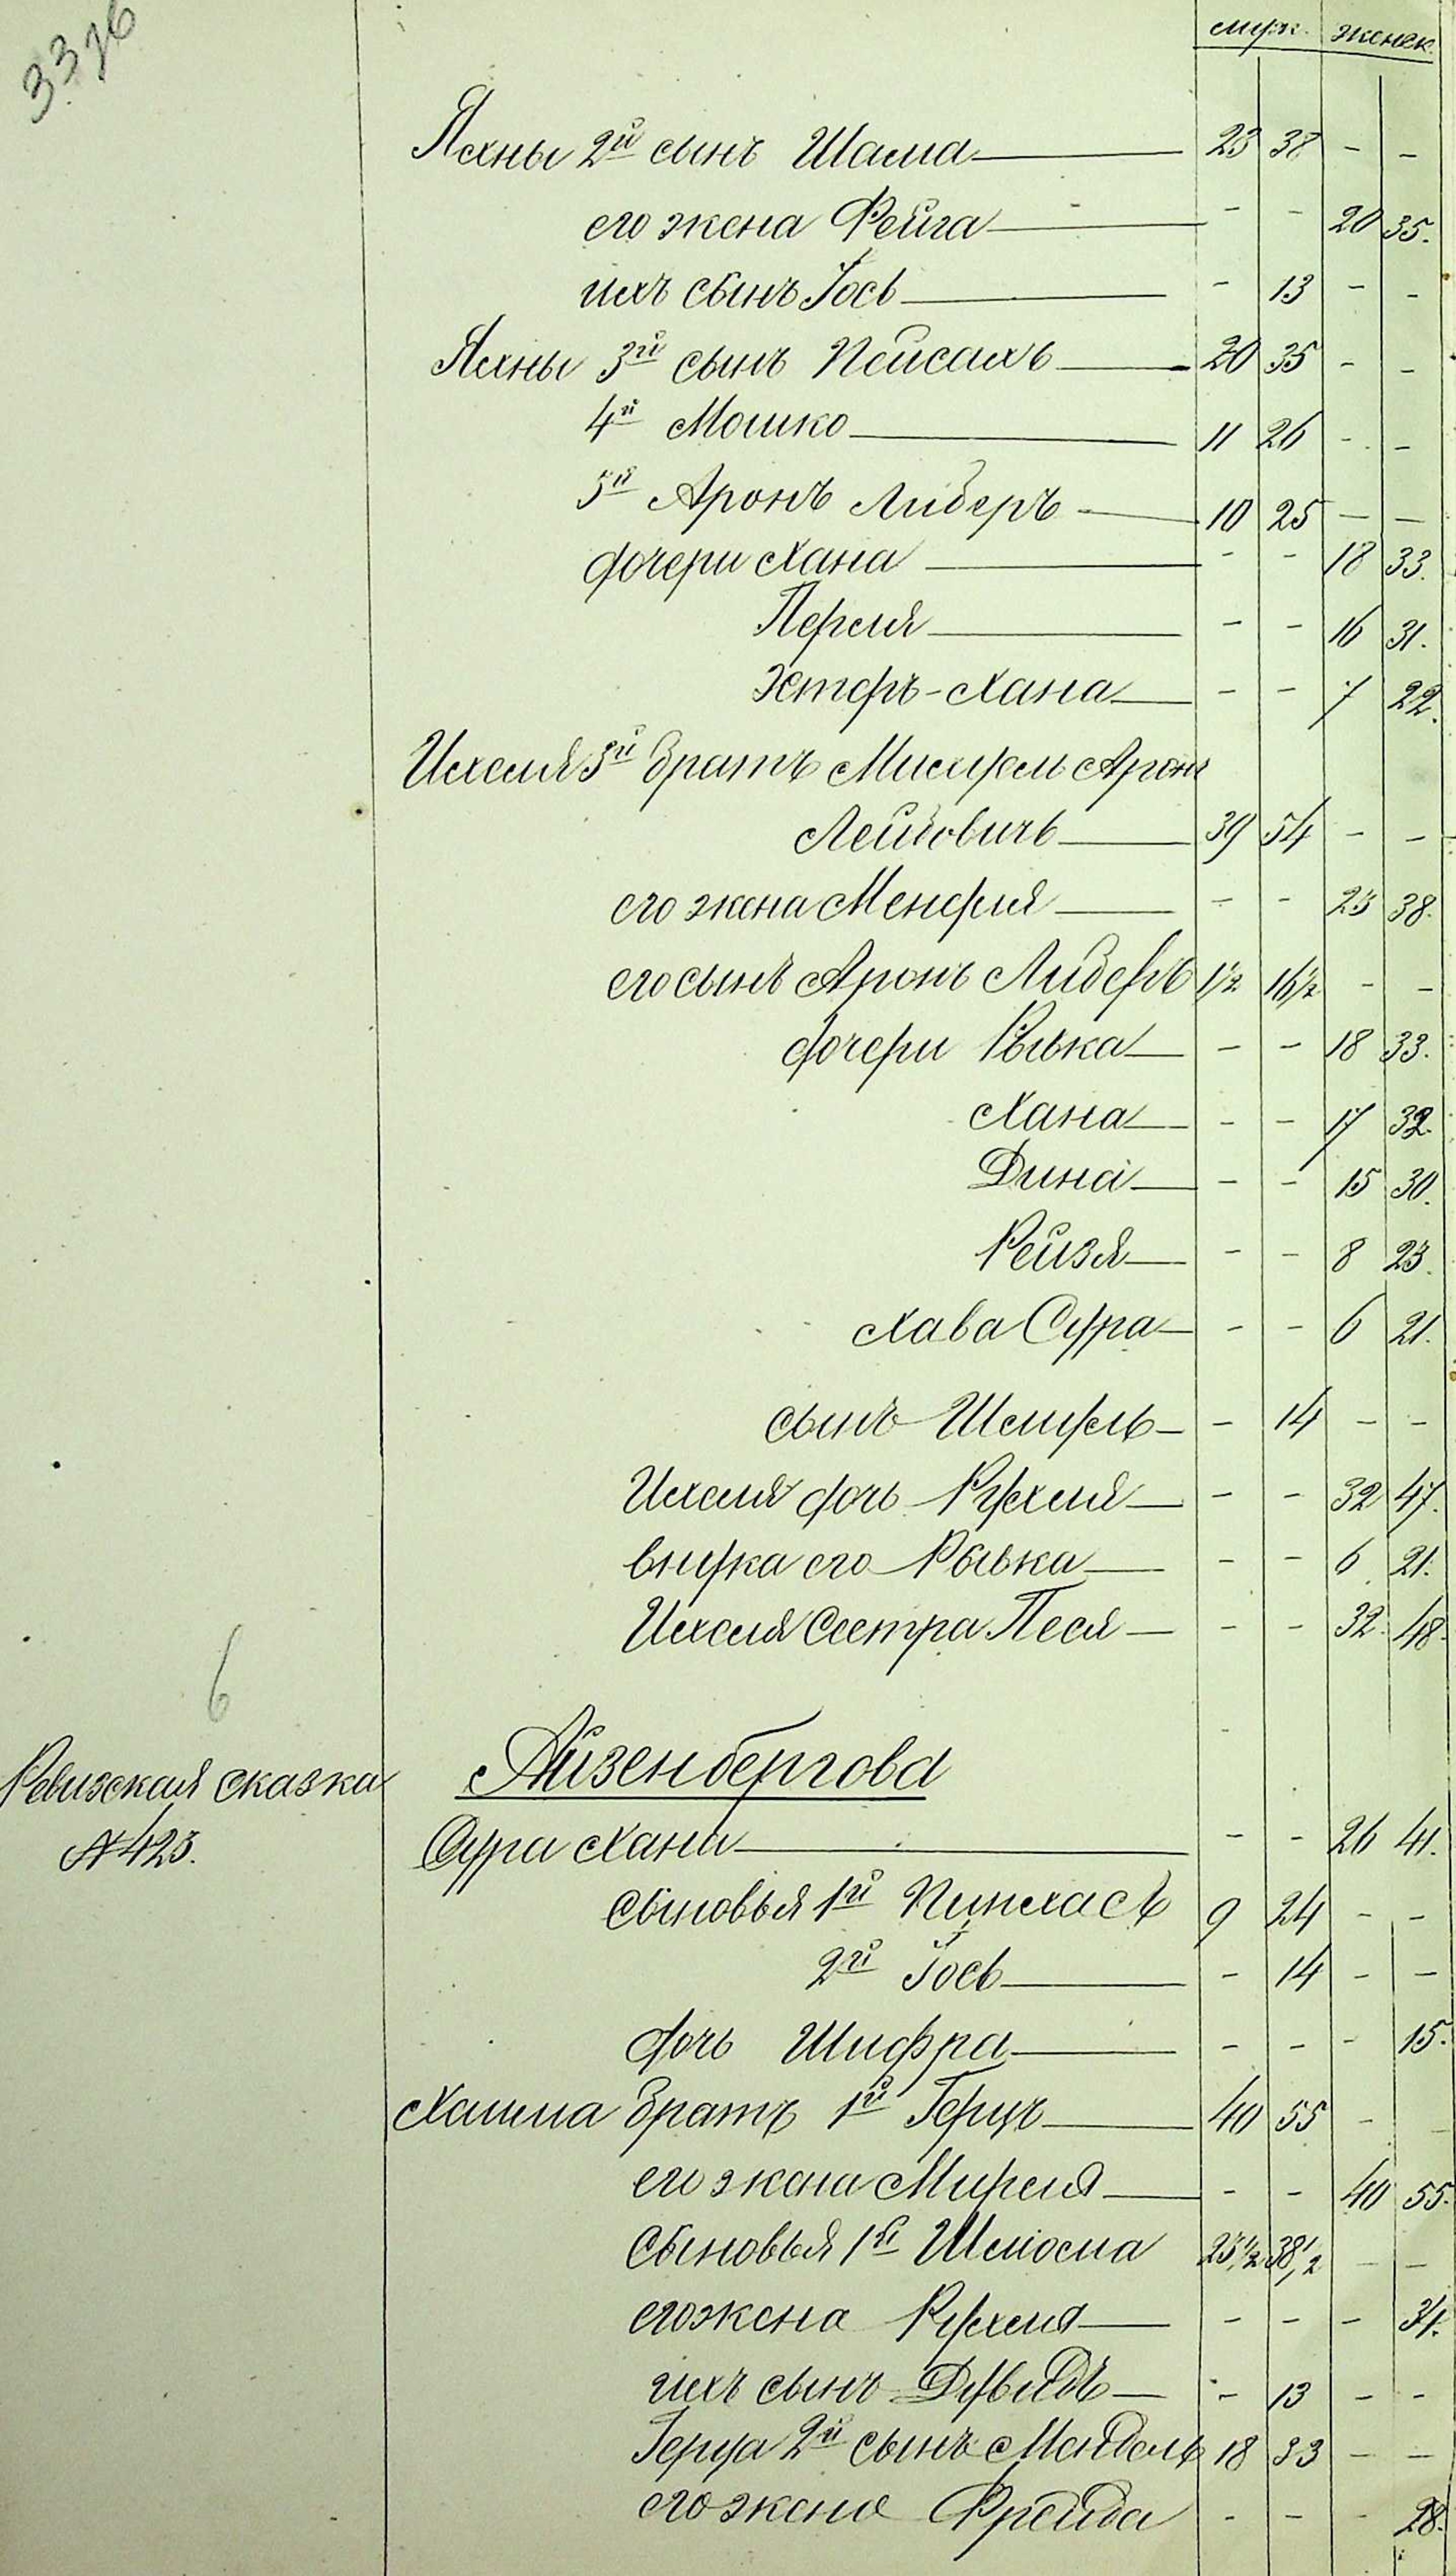 3376
муж. женск.
Яхны 2й сынъ Шама 23 38 - -
его жена Фейга - - 20 35.
ихъ сынъ Іось - 13 - -
Яхны 3й сынъ Пейсахъ 20 35 - -
4й Мошко 11 26 - -
5й Аронъ Либеръ 10 25 - -
дочери Хана - - 18 33.
Перля - - 16 31.
Эстфръ-Хана - - 7 22.
Ихеля 3й братъ Михель Аронъ
Лейбовичъ 39 54 - -
его жена Мендля - - 23 38.
его сынъ Аронъ Либеръ 1½ 16½ - -
дочери Рывка - - 18 33.
Хана - - 17 32.
Дина - - 15 30.
Рейзя - - 8 23.
Хава Сура - - 6 21.
сынъ Шмуль - 14 - -
Ихеля дочь Рухля - - 32 47.
внука его Рывка - - 6 21.
Ихеля Сестра Песя - - 32. 48.
6
Айзенбергова
Ревизская сказка
№ 423.
Сура Хана - - 26 41.
Сыновья 1й Пинхасъ 9 24 - -
2й Іось - 14 - -
дочь Шифра - - - 15.
Хаима братъ 1й Герцъ 40 55 - -
его жена Мирля - - 40 55.
Сыновья 1й Шліома 23½ 38½ - -
его жена Рухля - - - 34.
ихъ сынъ Дувидъ - 13 - -
Герца 2й сынъ Мендель 18 33 - -
его жена Фрейда - - - 28.